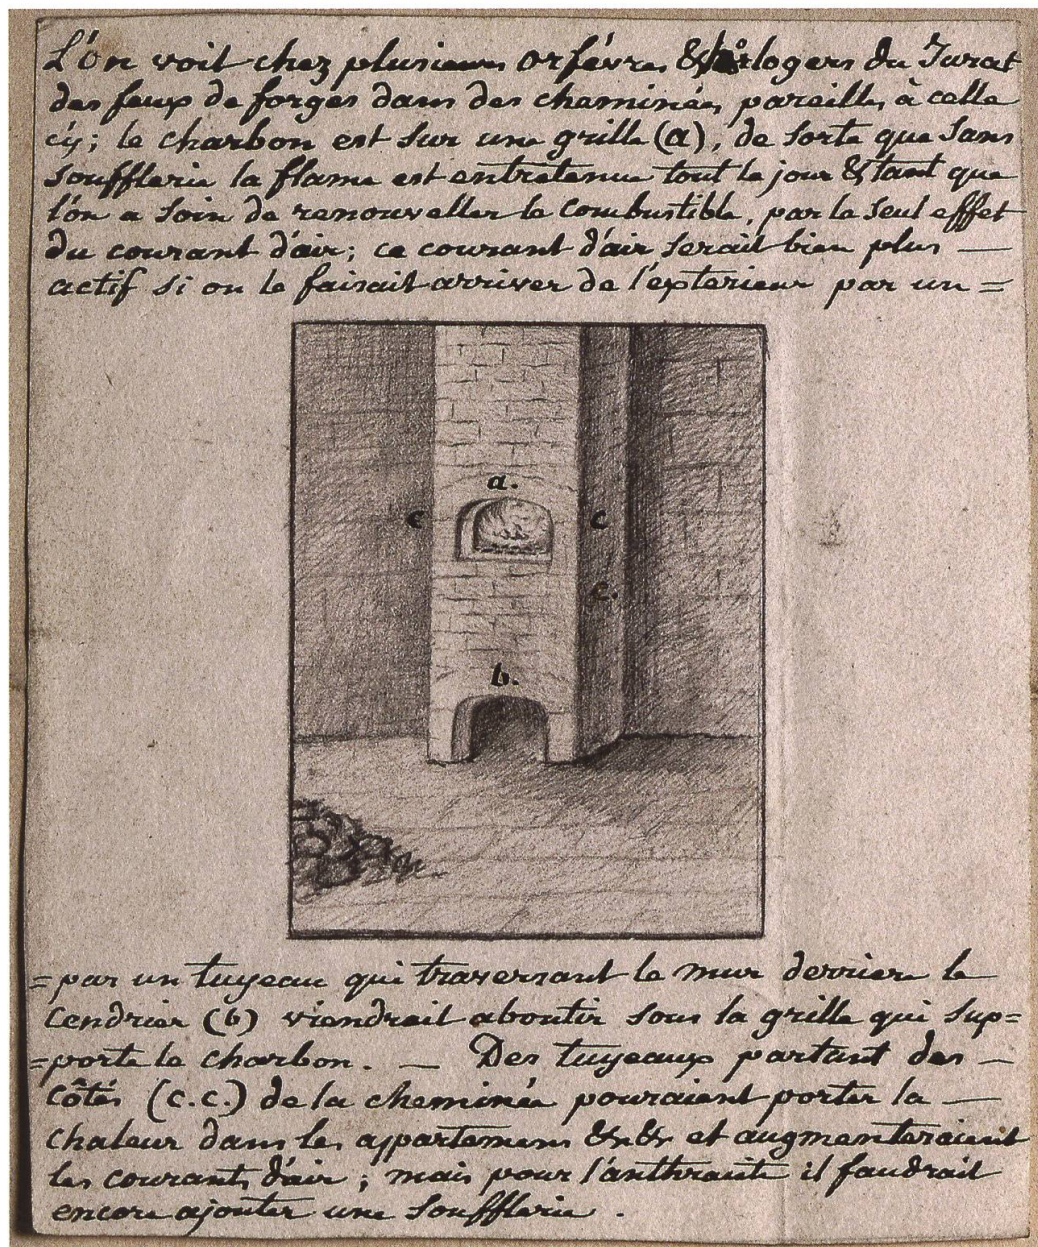 L'ón voit chez plusieurs orfévres & horlogers du Jurat
des feux de forges dans des cheminées pareilles à celle
cÿ; le charbon est sur une grille (a), de sorte que sans
soufflerie la flame est entretenue tout le jour & tant que
l'ón a soin de renouveller le combustible, par le seul effet
du courant d'air; ce courant d'air serait bien plus —
actif si on le faisait arriver de l'exterieur par un =
a.
c c
c.
b.
= par un tuyeau qui traversant le mur derriere le
Cendrier (b) viendrait aboutir sous la grille qui sup=
=porte le charbon. — Des tuyeaux partant des —
côtés (c.c.) de la cheminée pouraient porter la —
chaleur dans les appartemens &c&c et augmenteraient
les courants d'air; mais pour l'anthracite il faudrait
encore ajouter une soufflerie.